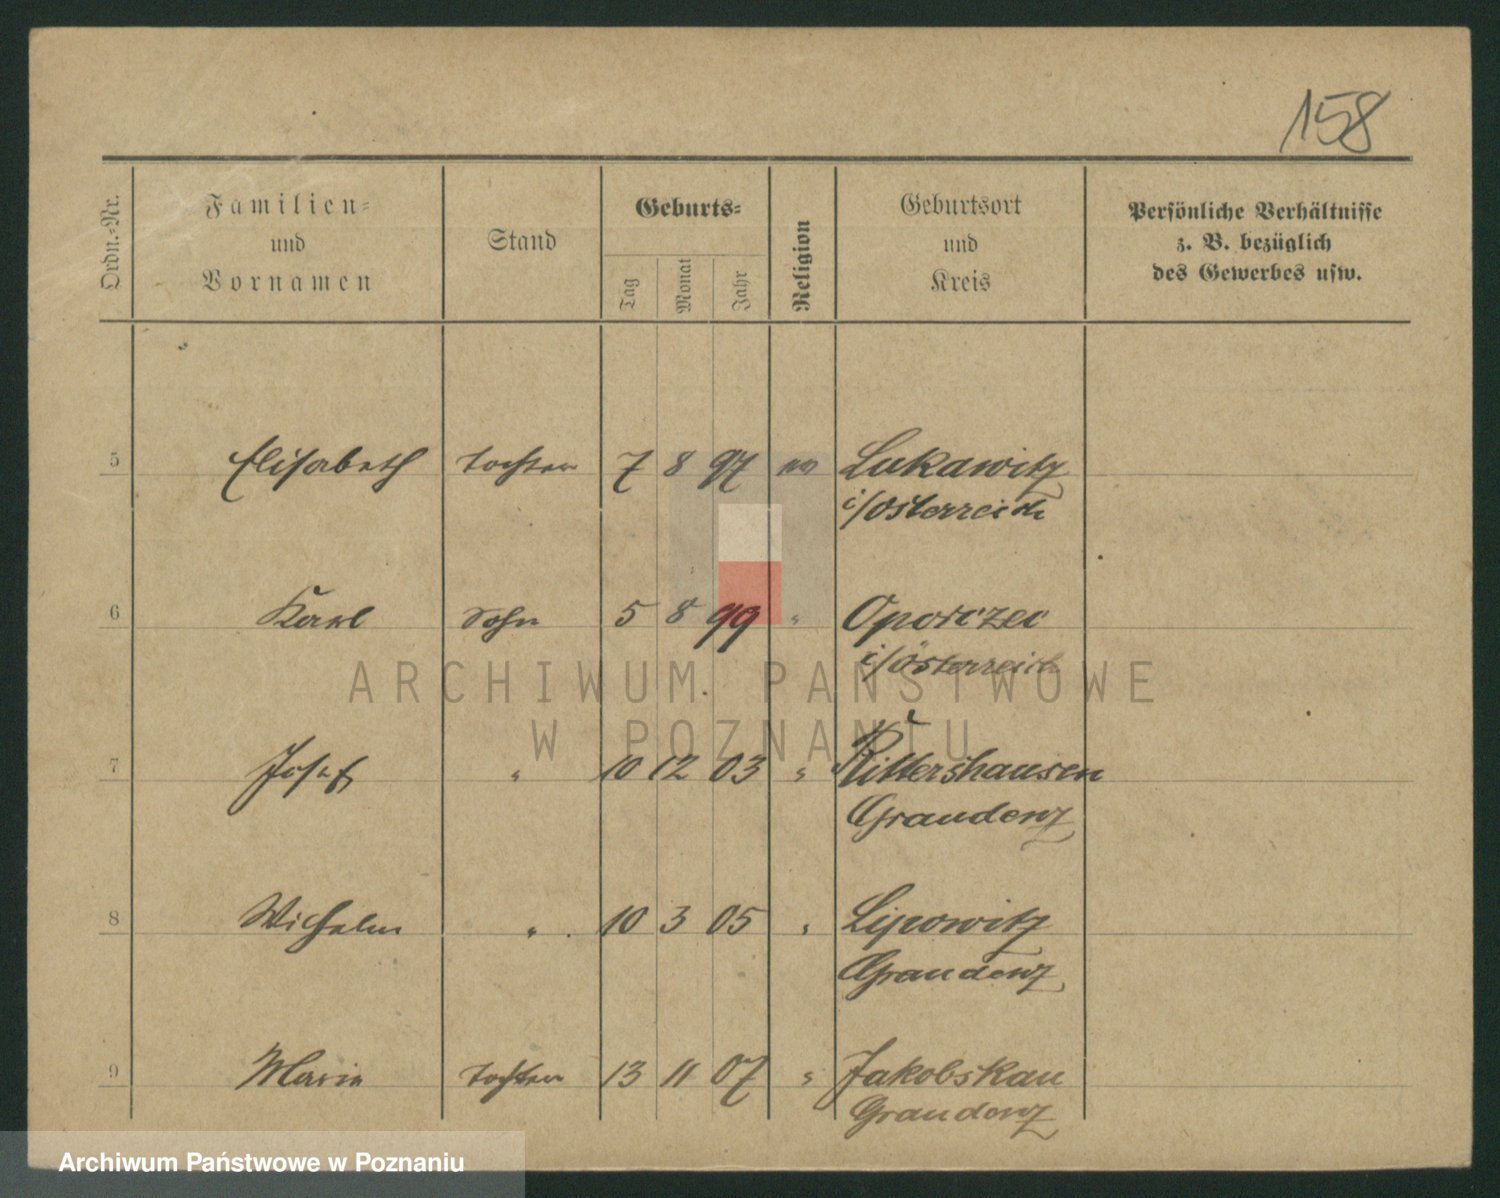 158
Ordn.-Nr.
Familien-
und
Vornamen
Stand
Geburts-
Tag
Monat
Jahr
Religion
Geburtsort
und
Kreis
Persönliche Verhältnisse
z. B. bezüglich
des Gewerbes usw.
5 Elisabeth Tochter 7 8 97 ev Lukawitz
i/Österreich
6 Karl Sohn 5 8 99 " Oporczec
i/Österreich
7 Josef " 10 12 03 " Rittershausen
Graudenz
8 Wilhelm " 10 3 05 " Lipowitz
Graudenz
9 Maria Tochter 13 11 07 " Jakobskau
Graudenz
ARCHIWUM PAŃSTWOWE
W POZNANIU
Archiwum Państwowe w Poznaniu